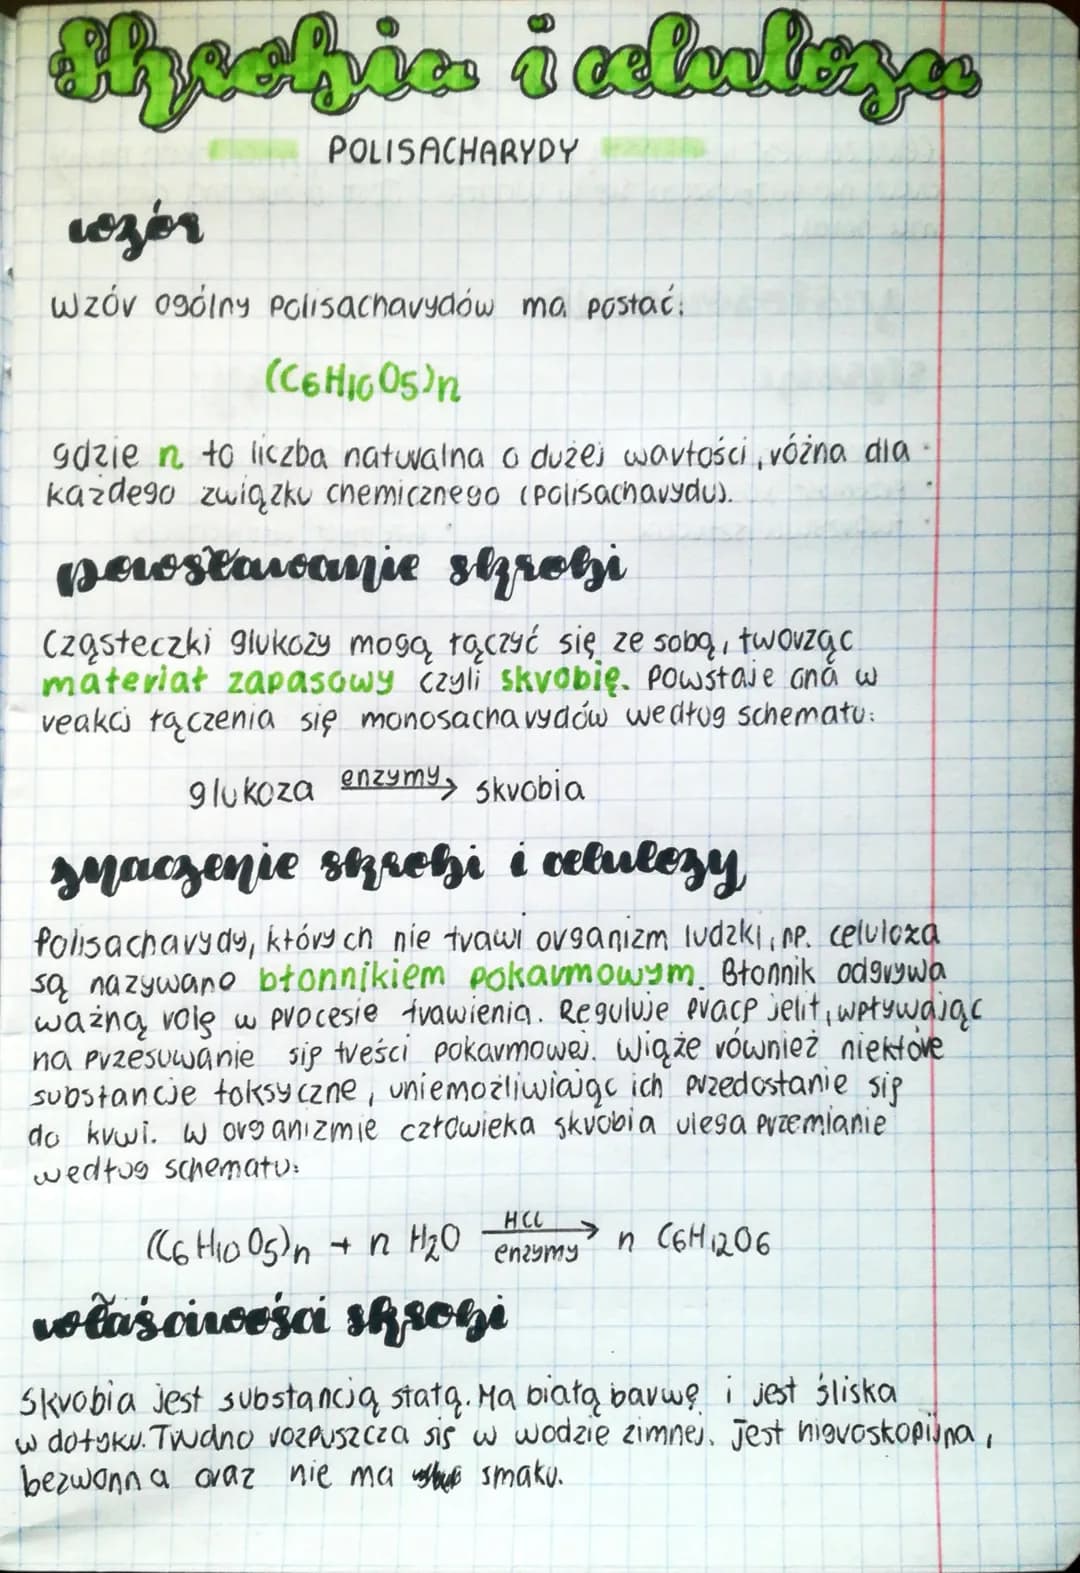 Skrobia i celuloza
POLISACHARYDY
wzór
Wzór ogólny polisacharydów ma postać:
(C6H10O5)n
gdzie n to liczba naturalna o dużej wartości, różna dla
każdego związku chemicznego (polisacharydu).
powstawanie skrobi
Cząsteczki glukozy mogą łączyć się ze sobą, tworząc
materiał zapasowy czyli skrobię. Powstaje ona w
reakcj łączenia się monosacharydów według schematu:
glukoza enzymy→ skrobia
znaczenie skrobi i celulozy
Polisacharydy, których nie trawi organizm ludzki, np. celuloza
są nazywano błonnikiem pokarmowym. Błonnik odgrywa
ważną rolę w procesie trawienia. Reguluje pracę jelit, wpływając
na przesuwanie się treści pokarmowej. Wiąże również niektóre
substancje toksyczne, uniemożliwiając ich przedostanie się
do krwi. W organizmie człowieka skrobia ulega przemianie
według schematu:
(C6H10O5)n + n H2O HCl enzymy → n C6H12O6
właściwości skrobi
Skrobia jest substancją stałą. Ma białą barwę i jest śliska
w dotyku. Trudno rozpuszcza się w wodzie zimnej. Jest higroskopijna,
bezwonna oraz nie ma smaku.